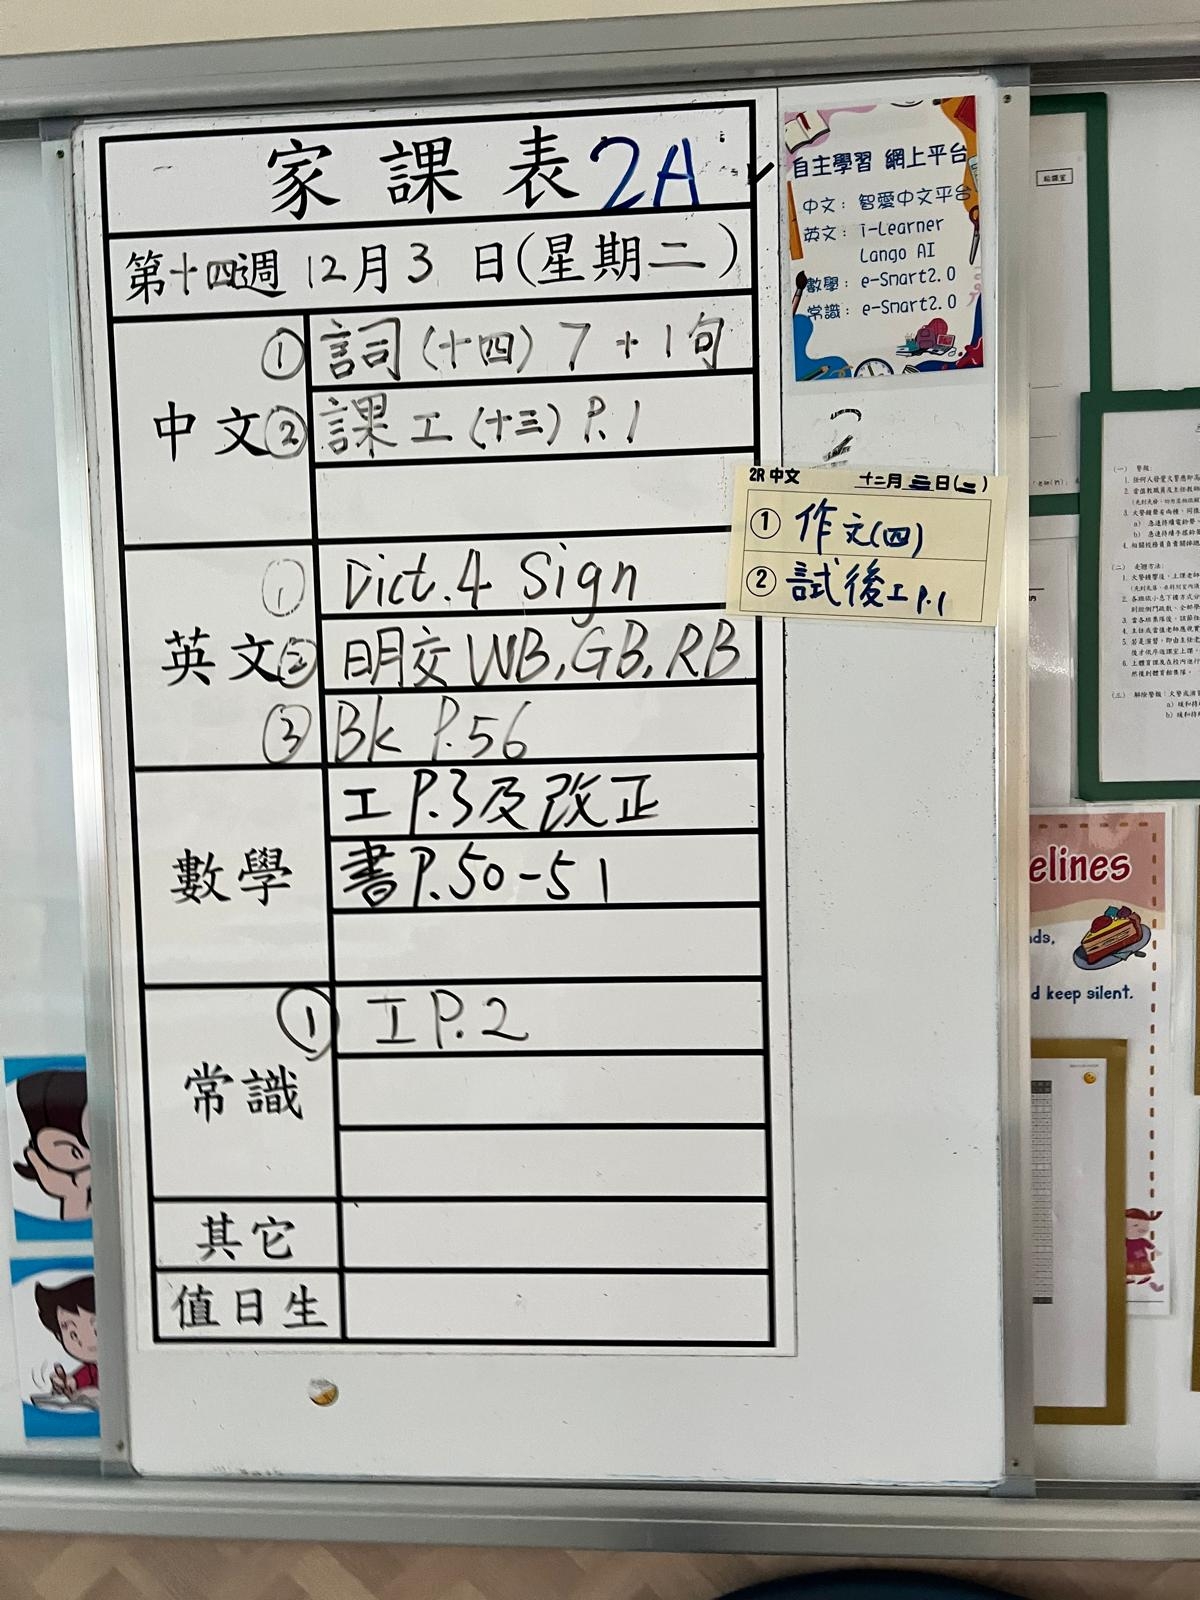 家課表2A
第十四週 12月3日(星期二)
中文
① 詞(十四) 7+1句
② 課工(十三) P.1
英文
① Dict.4 Sign
② 明交 WB, GB, RB
③ Bk P.56
數學
工 P.3及改正
書P.50-51
常識
① 工 P.2
其它
值日生
自主學習 網上平台
中文: 智愛中文平台
英文: i-Learner
Lango AI
數學: e-Smart2.0
常識: e-Smart2.0
2R 中文 十二月三日(二)
① 作文(四)
② 試後工 P.1
elines
nds,
d keep silent.